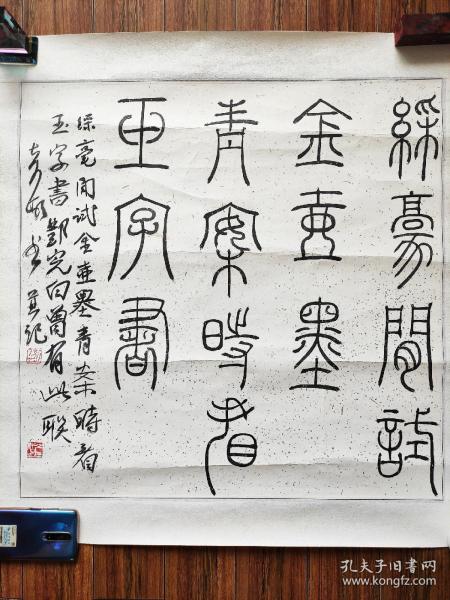 綵豪閒試
金壺墨
青案時看
玉字書
綵毫閒試金壺墨青案時看
玉字書鄧完白曾有此联
孔夫子旧书网
www.kongfz.com